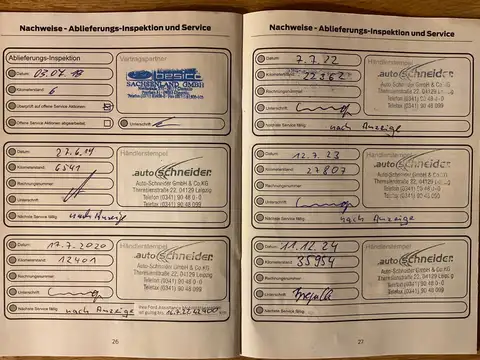 Nachweise - Ablieferungs-Inspektion und Service
Ablieferungs-Inspektion
Datum: 03.07.18
Kilometerstand: 6
Überprüft auf offene Service Aktionen:
Offene Service Aktionen abgearbeitet:
Vertragspartner
besico
SACHSENLAND GMBH
Unterschrift:
Datum: 27.6.19
Kilometerstand: 6541
Rechnungsnummer:
Unterschrift:
Nächste Service fällig: nach Anzeige
Händlerstempel
auto Schneider
Auto-Schneider GmbH & Co.KG
Theresienstraße 22, 04129 Leipzig
Telefon (0341) 90 48 0-0
Telefax (0341) 90 48 099
Datum: 17.7.2020
Kilometerstand: 12401
Rechnungsnummer:
Unterschrift:
Nächste Service fällig: nach Anzeige
Händlerstempel
auto Schneider
Auto-Schneider GmbH & Co.KG
Theresienstraße 22, 04129 Leipzig
Telefon (0341) 90 48 0-0
Telefax (0341) 90 48 099
26
Nachweise - Ablieferungs-Inspektion und Service
Datum: 7.7.22
Kilometerstand: 22362
Rechnungsnummer:
Unterschrift:
Nächste Service fällig: nach Anzeige
Händlerstempel
auto Schneider
Auto-Schneider GmbH & Co.KG
Theresienstraße 22, 04129 Leipzig
Telefon (0341) 90 48 0-0
Telefax (0341) 90 48 099
Datum: 12.7.23
Kilometerstand: 27807
Rechnungsnummer:
Unterschrift:
Nächste Service fällig: nach Anzeige
Händlerstempel
auto Schneider
Auto-Schneider GmbH & Co.KG
Theresienstraße 22, 04129 Leipzig
Telefon (0341) 90 48 0-0
Telefax (0341) 90 48 099
Datum: 11.12.24
Kilometerstand: 35954
Rechnungsnummer:
Unterschrift:
Nächste Service fällig:
Händlerstempel
auto Schneider
Auto-Schneider GmbH & Co.KG
Theresienstraße 22, 04129 Leipzig
Telefon (0341) 90 48 0-0
Telefax (0341) 90 48 099
27